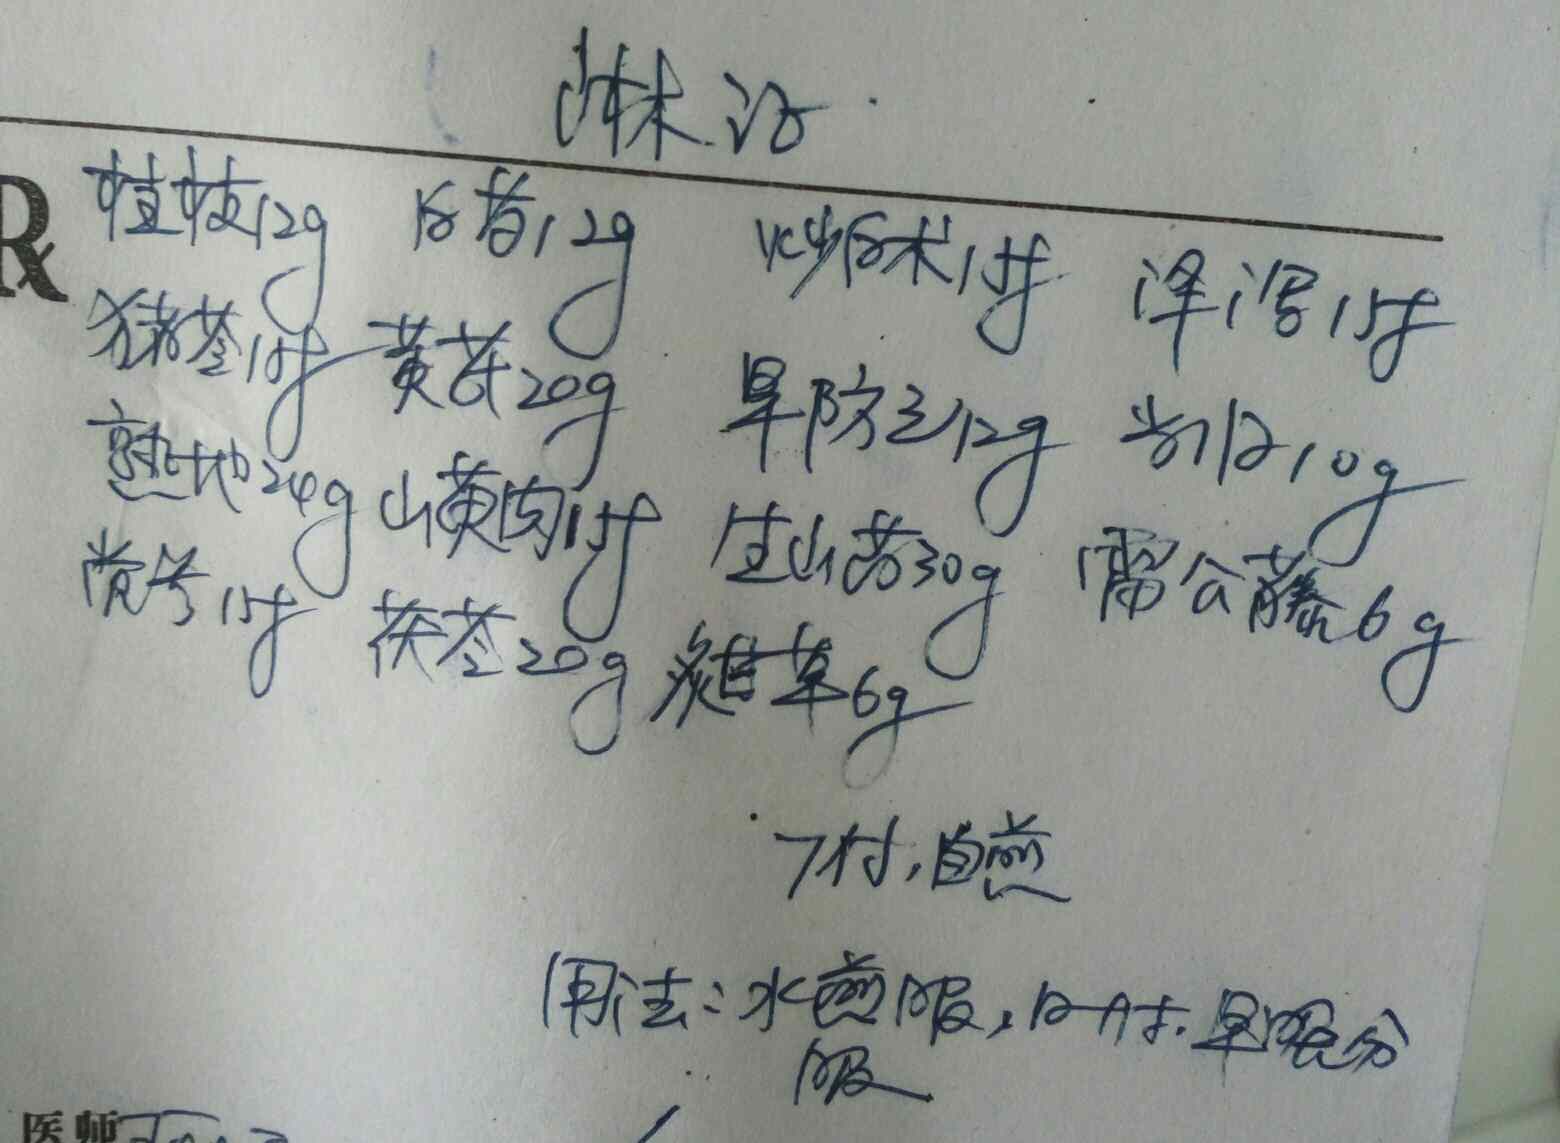 淋证
R
桂枝12g 白芍12g 炒白术15g 泽泻15g
猪苓15g 黄芪20g 旱防己12g 当归10g
熟地24g 山萸肉15g 生山药30g 雷公藤6g
黄芩15g 茯苓20g 炙甘草6g
7付,自煎
用法:水煎服,日一付.早晚分
服
医师